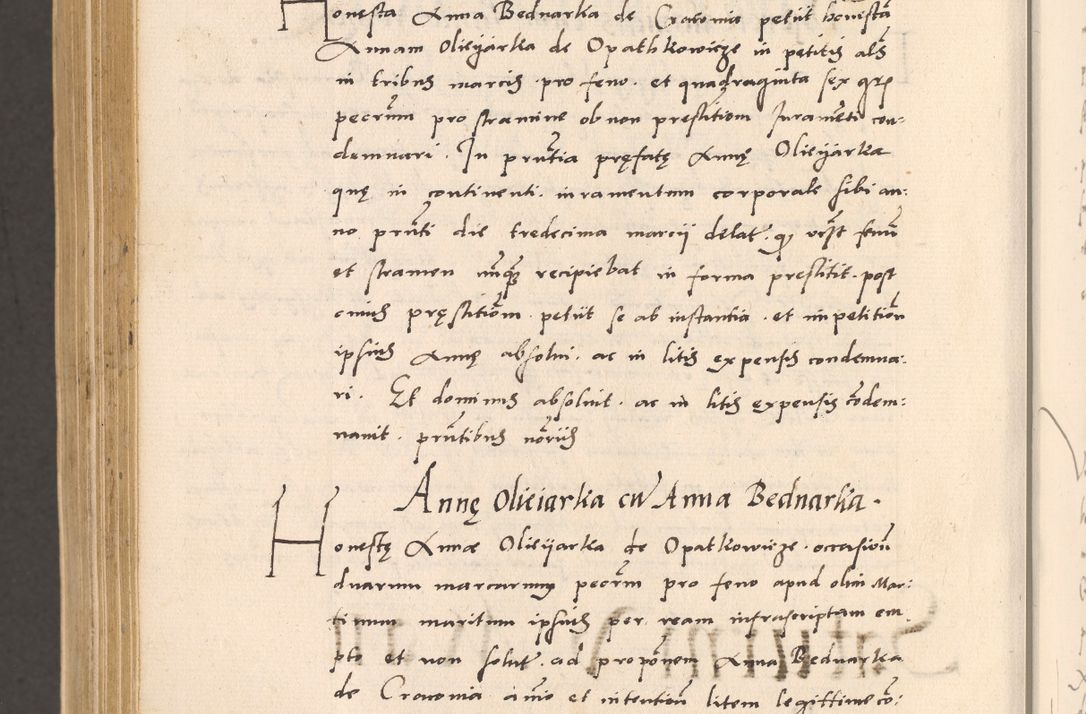 Honesta Anna Bednarka de Cracovia petiit honestã
Annam Olieyarka de Opathkowicze in petitis als
in tribus marcis pro feno et quadraginta sex grs
pecrũm pro stramine ob non prestitiom Juramẽti con-
demnari. In prñtia pręfatę Annę Olieyarka
quę in continenti iuramentum corporale sibi an:
no prñti die tredecima marcii delat. q̃ fenũ
et stramen nũq̃ recipiebat in forma prestitit. post
cuius pręstitiõm petiit se ab instantia et impetitiõn
ipsius Annę absolui. ac in litis expensis condemna:
ri. Et dominus absoluit. ac in litis expensis cõdem:
nauit. prñtibus nõriis
Annę Olieiarka cũ Anna Bednarka.
Honestę Annæ Olieyarka de Opatkowicze occasiõn
duarum marcarum pecrũm pro feno apud olim Mar:
tinum maritum ipsius per ream infrascriptam em
pto et non solut. ad propõnem Anna Bednarka
de Cracovia aĩmo et intentiõn litem legittime cõ: